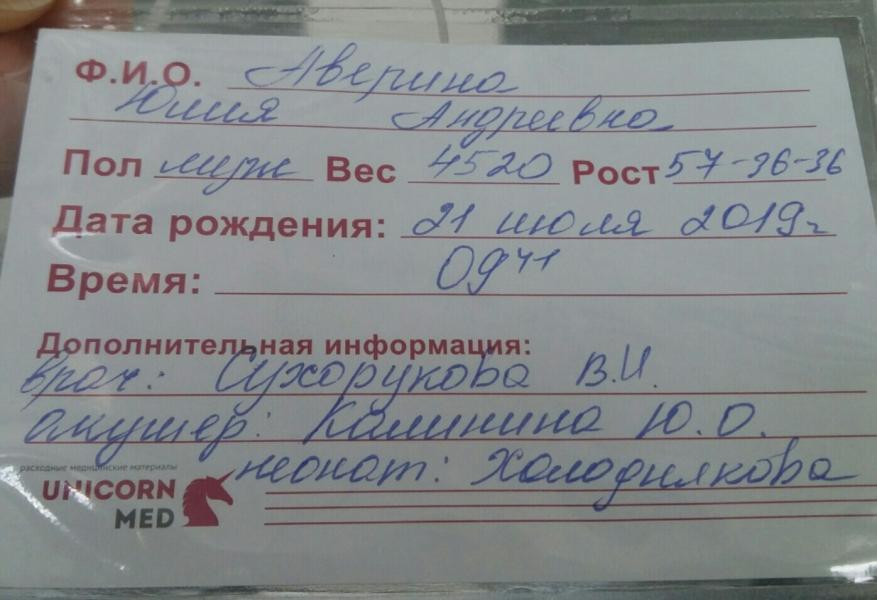 Ф.И.О. Аверина
Юлия Андреевна
Пол муж Вес 4520 Рост 57-36-36
Дата рождения: 21 июля 2019г
Время: 09⁴¹
Дополнительная информация:
врач: Сухорукова В.И.
акушер: Калинина Ю.О.
расходные медицинские материалы
неонат: Холодилкова
UNICORN
MED